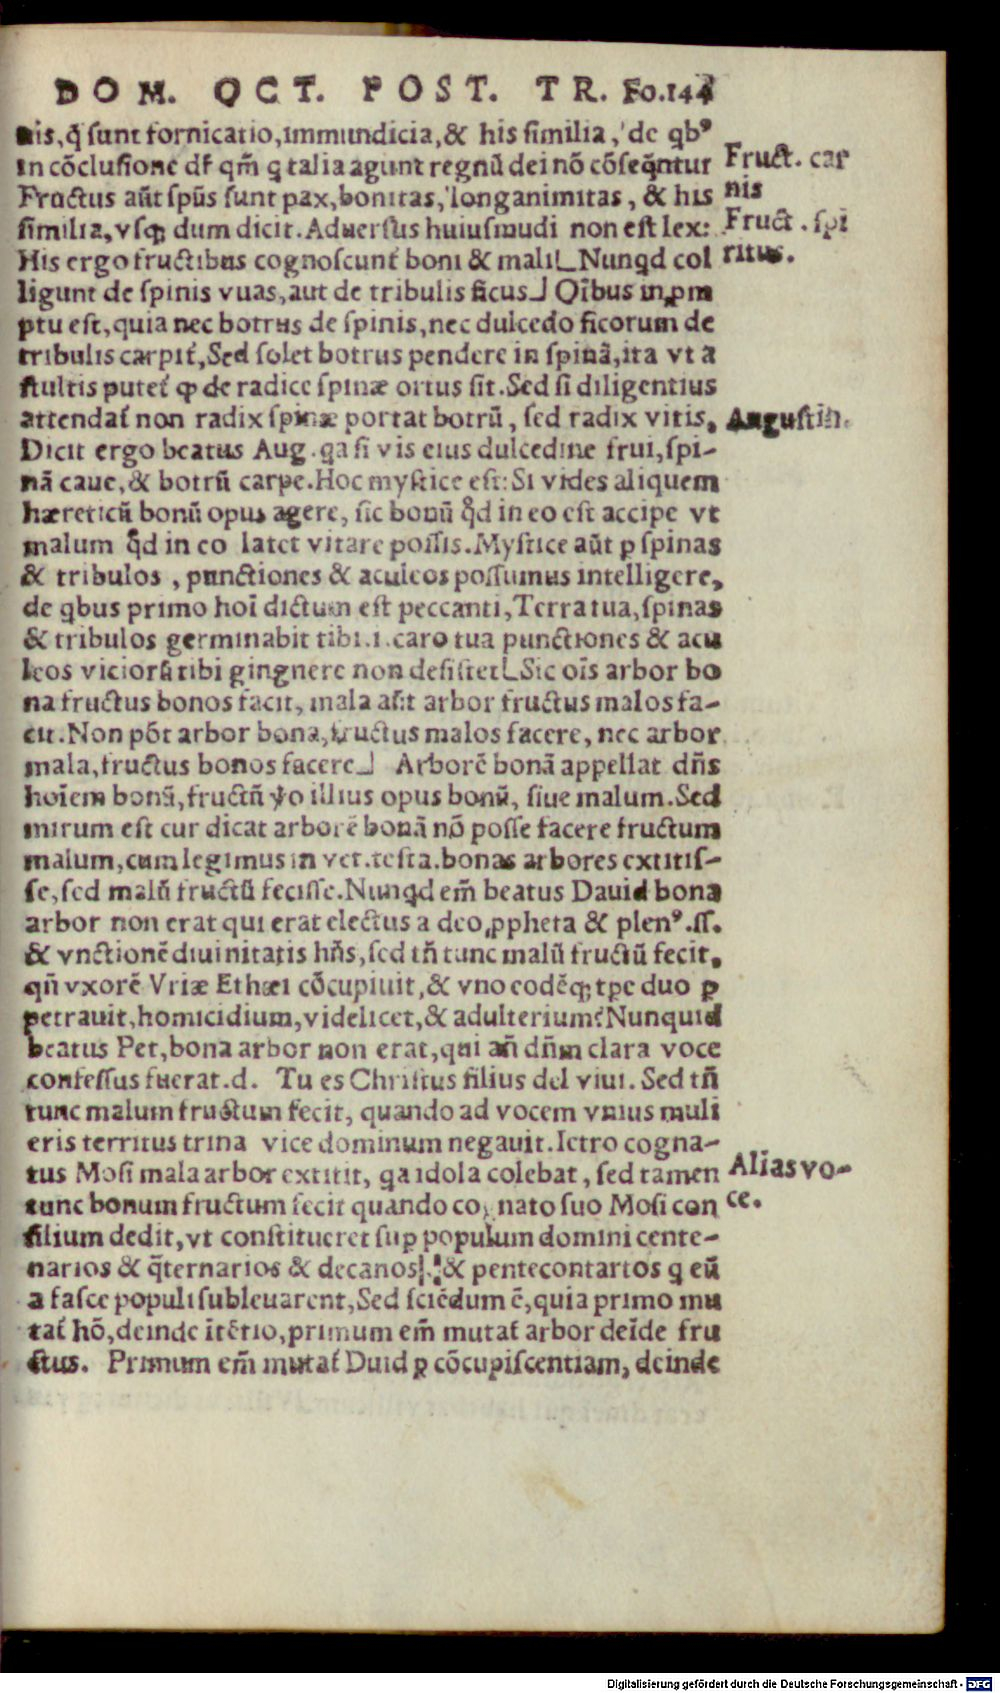 DOM. OCT. POST. TR. Fo.144
nis, q̃ sunt fornicatio, immundicia, & his similia, de qbꝰ
in cõclusione dr̃ qm̃ q talia agunt regnũ dei nõ cõseq̃ntur
Fructus aũt spũs sunt pax, bonitas, longanimitas, & his
similia, vsqꝫ dum dicit. Aduersus huiusmodi non est lex:
His ergo fructibus cognoscunt̃ boni & mali⎣Nunqd col
ligunt de spinis vuas, aut de tribulis ficus⎦ Oĩbus in ꝓm
ptu est, quia nec botrus de spinis, nec dulcedo ficorum de
tribulis carpit̃, Sed solet botrus pendere in spinã, ita vt a
stultis putet̃ ꝙ de radice spinæ ortus sit. Sed si diligentius
attendat̃ non radix spinæ portat botrũ, sed radix vitis.
Dicit ergo beatus Aug. qa si vis eius dulcedine frui, spi-
nã caue, & botrũ carpe. Hoc mystice est: Si vides aliquem
hæreticũ bonũ opus agere, sic bonũ qd in eo est accipe vt
malum qd in eo latet vitare possis. Mystice aũt ꝑ spinas
& tribulos, punctiones & aculeos possumus intelligere,
de qbus primo hoĩ dictum est peccanti, Terra tua, spinas
& tribulos germinabit tibi .i. caro tua punctiones & acu
leos vicioꝝ tibi gingnere non desistet⎣Sic oĩs arbor bo
na fructus bonos facit, mala aũt arbor fructus malos fa-
cit. Non põt arbor bona, fructus malos facere, nec arbor
mala, fructus bonos facere⎦ Arborẽ bonã appellat dñs
hoĩem bonũ, fructũ ꝟo illius opus bonũ, siue malum. Sed
mirum est cur dicat arborẽ bonã nõ posse facere fructum
malum, cum legimus in vet. testa. bonas arbores extitis-
se, sed malũ fructũ fecisse. Nunqd em̃ beatus Dauid bona
arbor non erat qui erat electus a deo, ꝓpheta & plenꝰ .ss.
& vnctionẽ diuinitatis hñs, sed tñ tunc malũ fructũ fecit,
qñ vxorẽ Vriæ Ethæi cõcupiuit, & vno eodẽqꝫ tꝑe duo ꝑ
petrauit, homicidium, videlicet, & adulterium? Nunquid
beatus Pet, bona arbor non erat, qui añ dñm clara voce
confessus fuerat .d. Tu es Christus filius dei viui. Sed tñ
tunc malum fructum fecit, quando ad vocem vnius muli
eris territus trina vice dominum negauit. Ietro cogna-
tus Mosi mala arbor extitit, qa idola colebat, sed tamen
tunc bonum fructum fecit quando cognato suo Mosi con
silium dedit, vt constitueret suꝑ populum domini cente-
narios & q̃ternarios & decanos & pentecontartos q eũ
a fasce populi subleuarent, Sed sciẽdum ẽ, quia primo mu
tat̃ hõ, deinde ĩtẽtio, primum em̃ mutat̃ arbor deĩde fru
ctus. Primum em̃ mutat̃ Duid ꝑ cõcupiscentiam, deinde
Fruct. car
nis
Fruct. spi
ritus.
Augustin.
Alias vo-
ce.
Digitalisierung gefördert durch die Deutsche Forschungsgemeinschaft - DFG